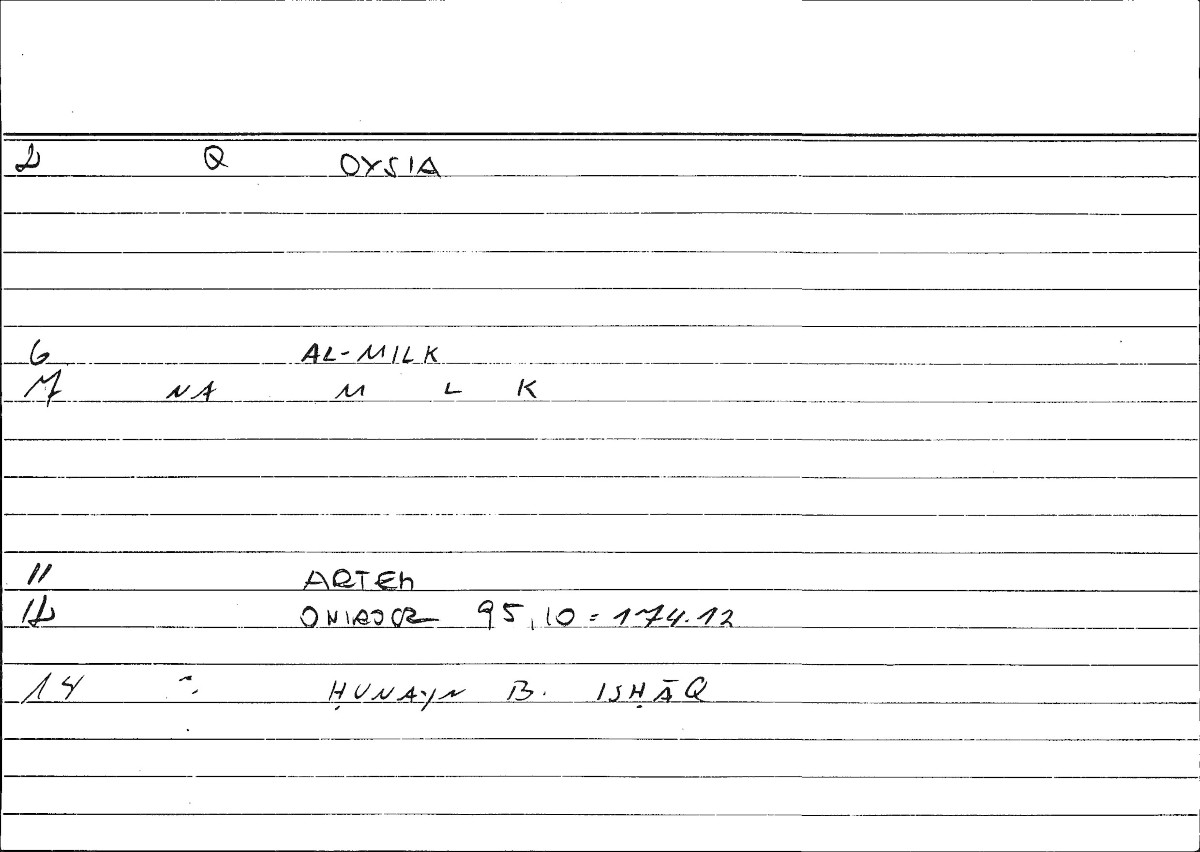 2 Q OYSIA
6 AL-MILK
7 NA M L K
11 ARTEM
12 ONIROCR 95,10 = 174.12
14 ḤUNAYN B. ISḤĀQ